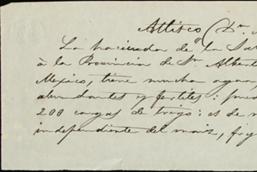 Atlisco (Dn.
La hacienda de la Sa
à la Provincia de Sn. Albert
Mexico, tiene mucha agua,
abundantes y fertiles: pue
200 cargas de trigo: es de
independiente del maiz, fri